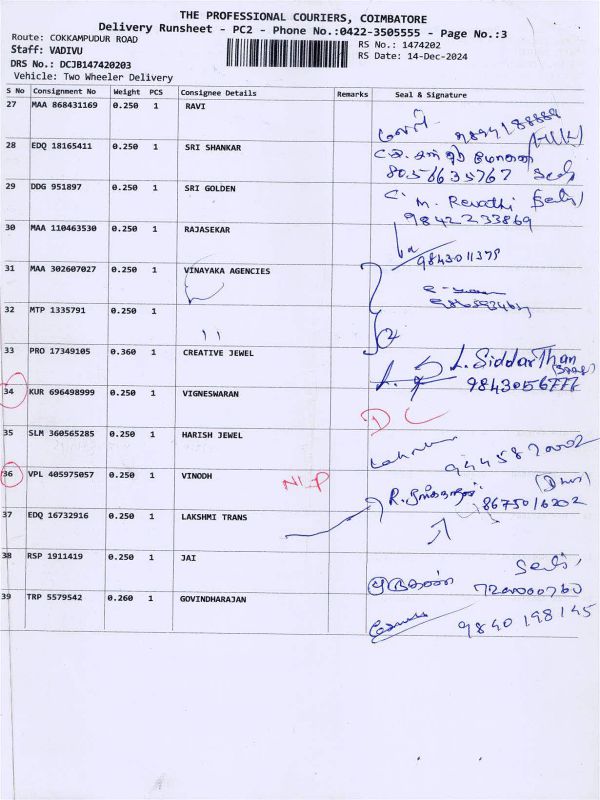 THE PROFESSIONAL COURIERS, COIMBATORE
Delivery Runsheet - PC2 - Phone No.:0422-3505555 - Page No.:3
Route: COKKAMPUDUR ROAD
RS No.: 1474202
Staff: VADIVU
RS Date: 14-Dec-2024
DRS No.: DCJB147420203
Vehicle: Two Wheeler Delivery
S No Consignment No Weight PCS Consignee Details Remarks Seal & Signature
27 MAA 868431169 0.250 1 RAVI
28 EDQ 18165411 0.250 1 SRI SHANKAR
8056635767
29 DDG 951897 0.250 1 SRI GOLDEN
M. Revathi
9842233869
30 MAA 110463530 0.250 1 RAJASEKAR
9843011379
31 MAA 302607027 0.250 1 VINAYAKA AGENCIES
32 MTP 1335791 0.250 1
33 PRO 17349105 0.360 1 CREATIVE JEWEL
L. SiddarThan
9843056777
34 KUR 696498999 0.250 1 VIGNESWARAN
DC
35 SLM 360565285 0.250 1 HARISH JEWEL
9445872002
36 VPL 405975057 0.250 1 VINODH NLP
8675016202
37 EDQ 16732916 0.250 1 LAKSHMI TRANS
38 RSP 1911419 0.250 1 JAI
முருகன்
7200000760
39 TRP 5579542 0.260 1 GOVINDHARAJAN
9840198145